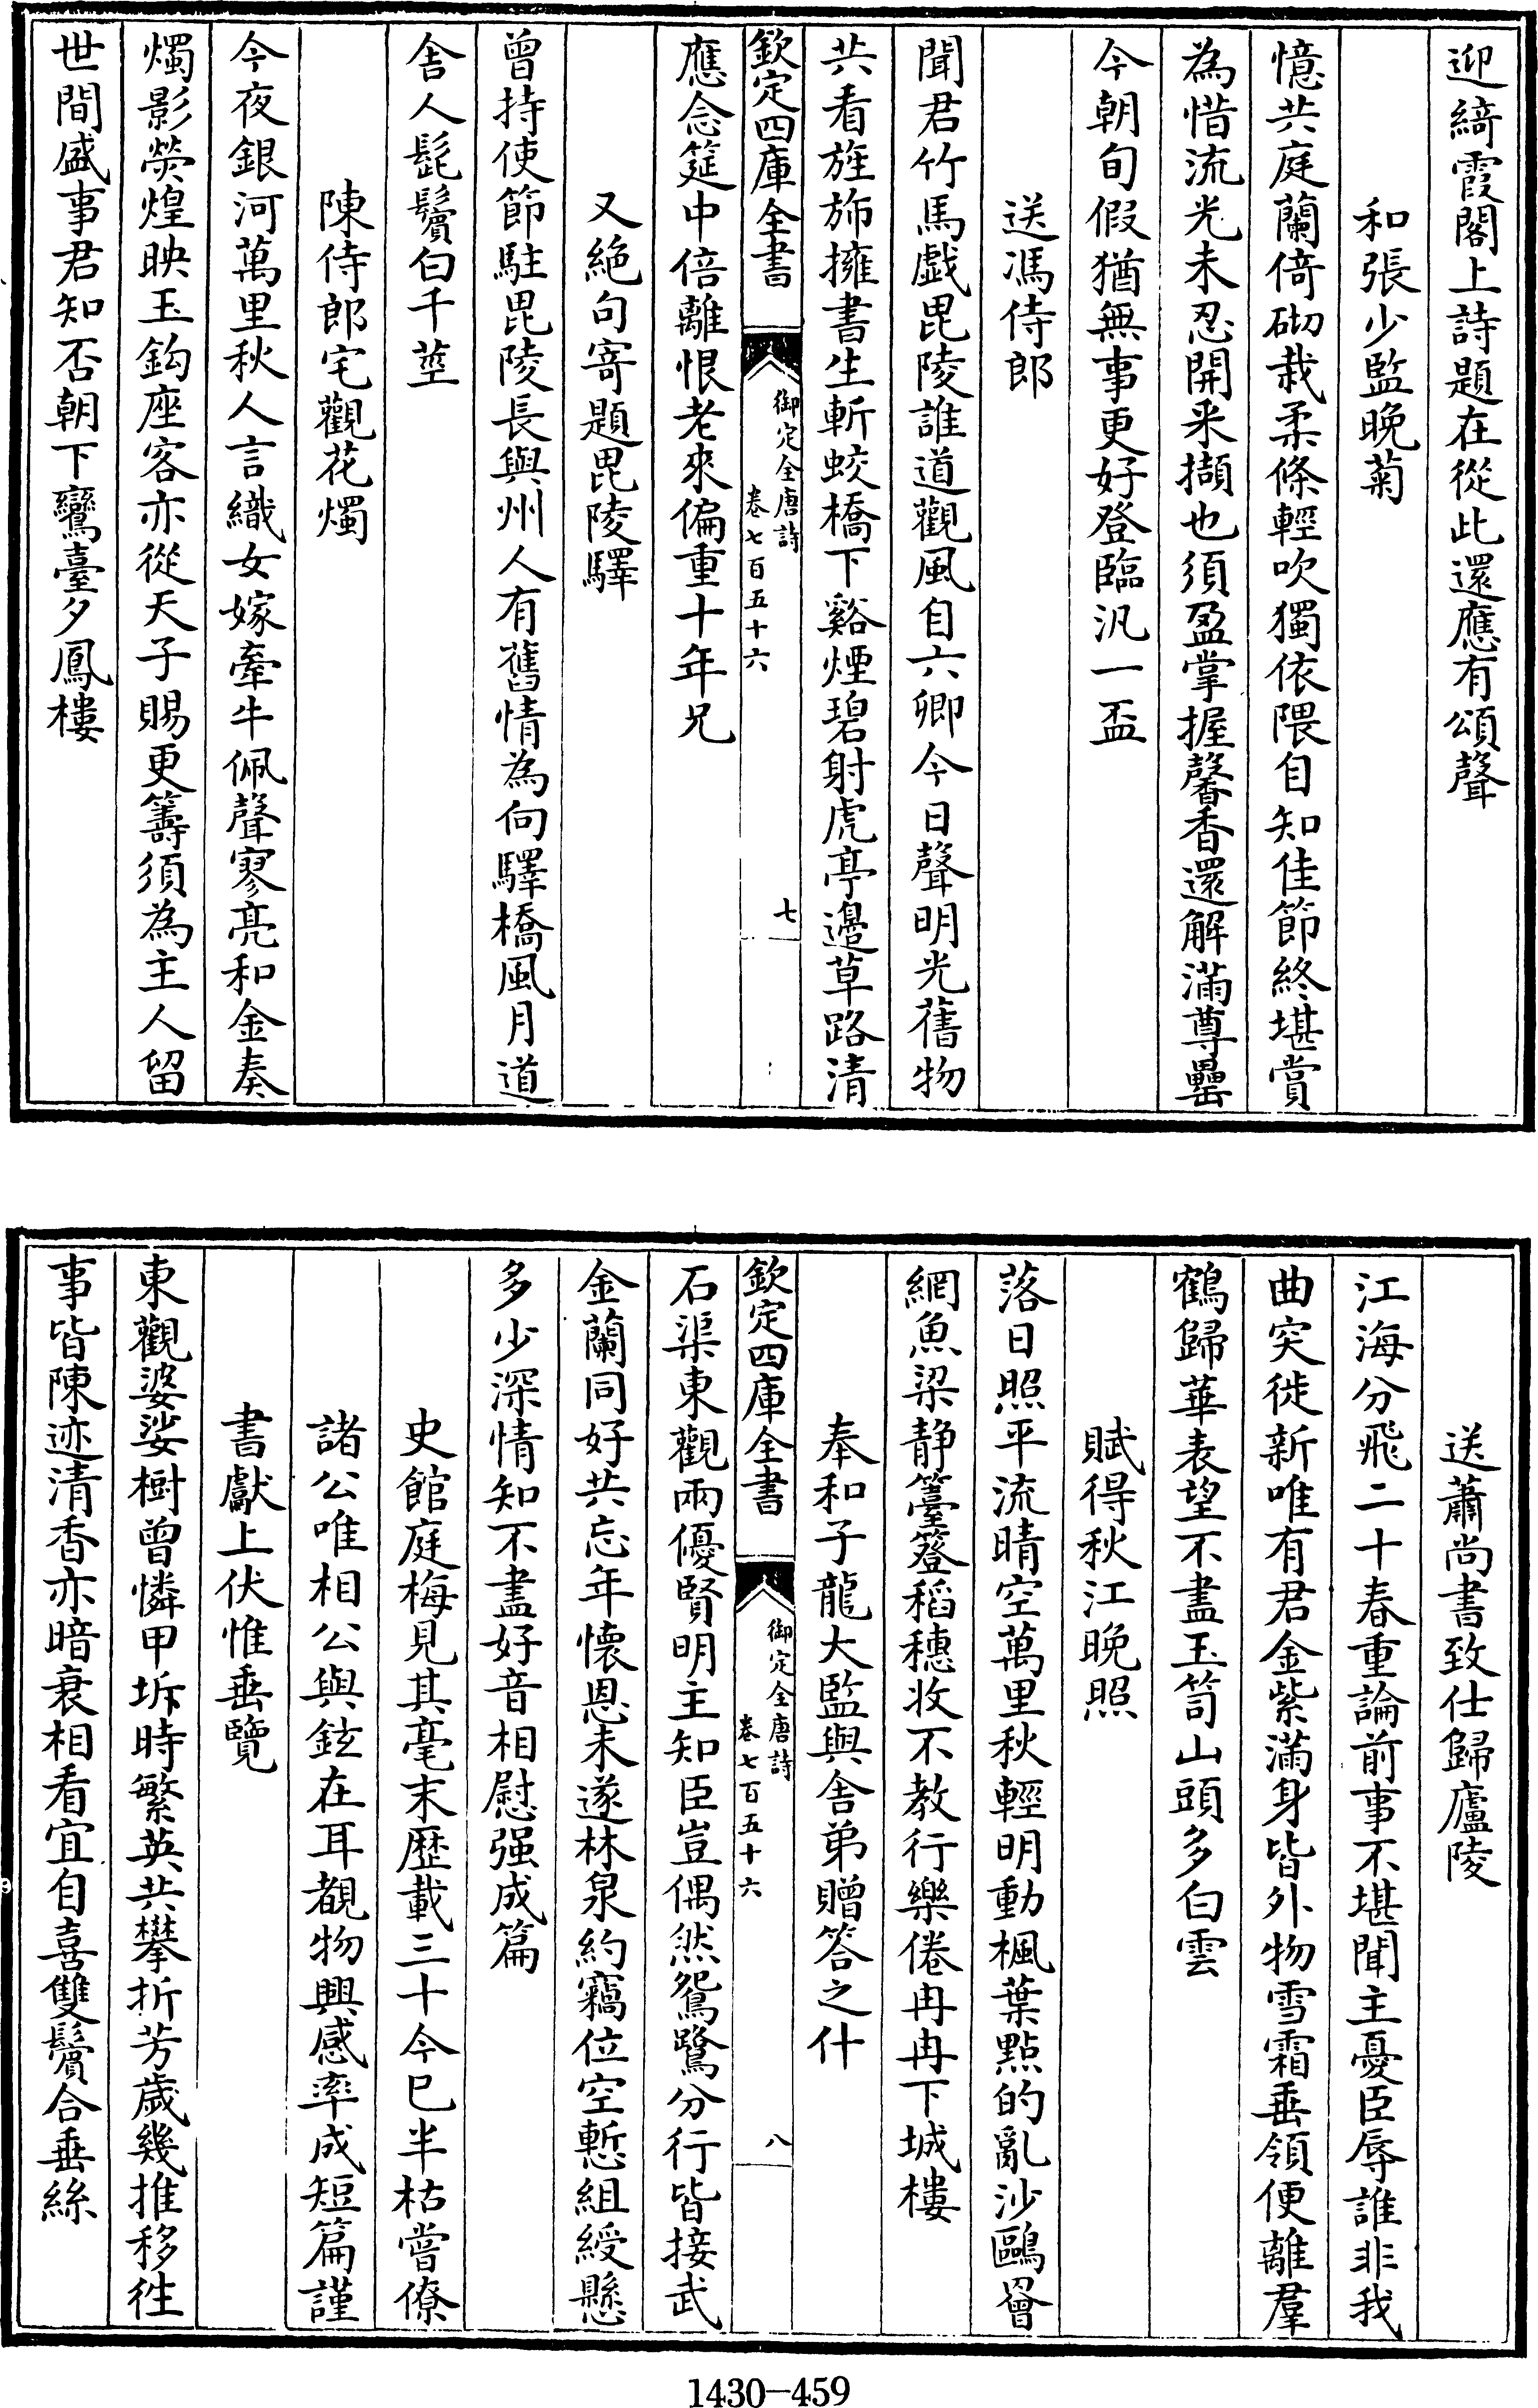 迎綺霞閣上詩題在從此還應有頌聲
和張少監晚菊
憶共庭蘭倚砌栽柔條輕吹獨依隈自知佳節終堪賞
為惜流光未忍開采擷也須盈掌握馨香還解滿尊罍
今朝旬假猶無事更好登臨汎一盃
送馮侍郎
聞君竹馬戲毘陵誰道觀風自六卿今日聲明光舊物
共看旌斾擁書生斬蛟橋下谿煙碧射虎亭邊草路清
欽定四庫全書
御定全唐詩
卷七百五十六
七
應念筵中倍離恨老來偏重十年兄
又絕句寄題毘陵驛
曾持使節駐毘陵長與州人有舊情為向驛橋風月道
舍人髭鬢白千莖
陳侍郎宅觀花燭
今夜銀河萬里秋人言織女嫁牽牛佩聲寥亮和金奏
燭影熒煌映玉鈎座客亦從天子賜更籌須為主人留
世間盛事君知否朝下鸞臺夕鳳樓
送蕭尚書致仕歸廬陵
江海分飛二十春重論前事不堪聞主憂臣辱誰非我
曲突徙新唯有君金紫滿身皆外物雪霜垂領便離羣
鶴歸華表望不盡玉笥山頭多白雲
賦得秋江晚照
落日照平流晴空萬里秋輕明動楓葉點的亂沙鷗罾
網魚梁静簦簦稻穗收不教行樂倦冉冉下城樓
奉和子龍大監與舍弟贈答之什
欽定四庫全書
御定全唐詩
卷七百五十六
八
石渠東觀兩優賢明主知臣豈偶然鴛鷺分行皆接武
金蘭同好共忘年懷恩未遂林泉約竊位空慙組綬懸
多少深情知不盡好音相慰强成篇
史館庭梅見其毫末歷載三十今已半枯嘗僚
諸公唯相公與鉉在耳覩物興感率成短篇謹
書獻上伏惟垂覽
東觀婆娑樹曾憐甲坼時繁英共攀折芳歲幾推移徃
事皆陳迹清香亦暗衰相看宜自喜雙鬢合垂絲
1430-459